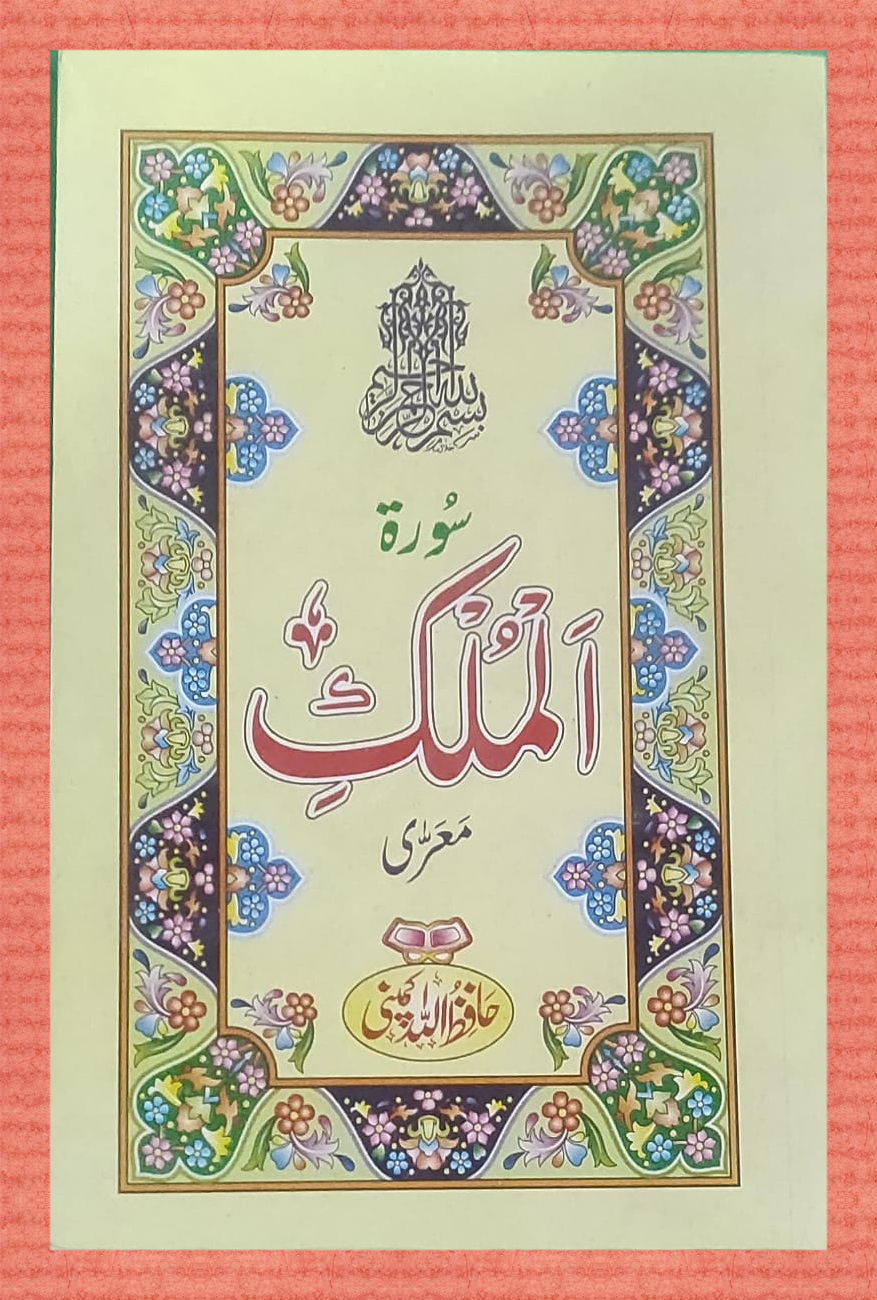 بسم الله الرحمن الرحيم
سُورة
اَلْمُلْكِ
مَعَرّٰی
حافظُ اللہ کمپنی